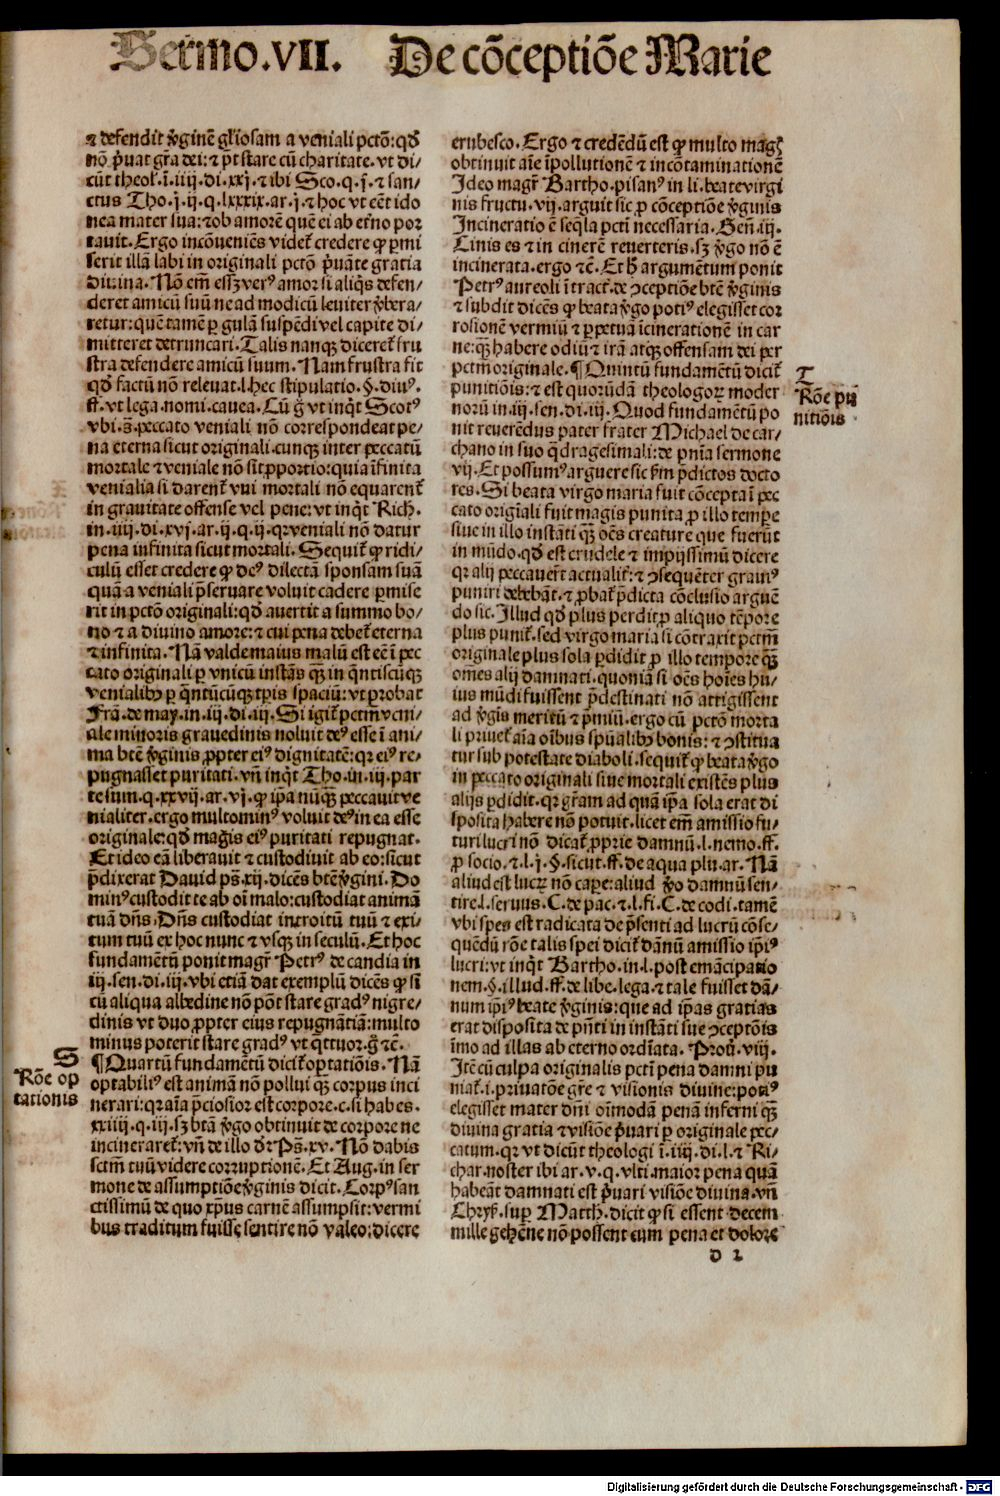 Sermo.VII. De cōceptiōe Marie
⁊ defendit v̄ginē gl̄iosam a veniali pctō: qd̄
nō p̄uat gr̄a dei: ⁊ pt̄ stare cū charitate. vt di/
cūt theol. ī. iiij. di. xxj. ⁊ ibi Sco. q. j. ⁊ san/
ctus Tho. j. ij. q. lxxxix. ar. j. ⁊ hoc vt eēt ido
nea mater sua: ⁊ ob amorē quē ei ab et̄no por
tauit. Ergo incōueniēs videt̄ credere ꝙ ꝑmi
serit illā labi in originali pctō p̄uāte gratia
diuina. Nō em̄ esset verꝰ amor si aliq̄s defen/
deret amicū suū ne ad modicū leuiter v̄bera/
retur: quē tamē ꝑ gulā suspēdi vel capite di/
mitteret detruncari. Talis nanqꝫ diceret̄ fru
stra defendere amicū suum. Nam frustra fit
qd̄ factū nō releuat. l. hec stipulatio. §. diuꝰ.
ff. vt lega. nomi. cauea. Cū g̊ vt inq̄t Scotꝰ
vbi. s̄. peccato veniali nō correspondeat pe/
na eterna sicut originali. cunqꝫ inter peccatū
mortale ⁊ veniale nō sit ꝓportio: quia īfinita
venialia si darent̄ vni mortali nō equarent̄
in grauitate offense vel pene: vt inq̄t Rich.
in. iiij. di. xvj. ar. ij. q. ij. qꝛ veniali nō datur
pena infinita sicut mortali. Sequit̄ ꝙ ridi/
culū esset credere ꝙ deꝰ dilectā sponsam suā
quā a veniali p̄seruare voluit cadere ꝑmise
rit in pctō originali: qd̄ auertit a summo bo/
no ⁊ a diuino amore: ⁊ cui pena debet̄ eterna
⁊ infinita. Nā valde maius malū est eē ī pec
cato originali ꝑ vnicū instās qꝫ in q̄ntiscūqꝫ
venialibꝰ ꝑ q̄ntūcūqꝫ tꝑis spaciū: vt ꝓbat
Frā. de may. in. iij. di. iij. Si igit̄ pctm̄ veni/
ale minoris grauedinis noluit deꝰ esse ī ani/
ma btē v̄ginis ꝓpter eiꝰ dignitatē: qꝛ eiꝰ re/
pugnasset puritati. vn̄ inq̄t Tho. in. iij. par
te sum. q. xxvij. ar. vj. ꝙ ip̄a nūqꝫ peccauit ve
nialiter. ergo multominꝰ voluit deꝰ in ea esse
originale: qd̄ magis eiꝰ puritati repugnat.
Et ideo eā liberauit ⁊ custodiuit ab eo: sicut
p̄dixerat Dauid ps̄. xij. dicēs btē v̄gini. Do
minꝰ custodit te ab oī malo: custodiat animā
tuā dn̄s. Dn̄s custodiat introitū tuū ⁊ exi/
tum tuū ex hoc nunc ⁊ vsqꝫ in seculū. Et hoc
fundamētū ponit magr̄ Petrꝰ de candia in
iij. sen. di. iij. vbi etiā dat exemplū dicēs ꝙ si
cū aliqua albedine nō pōt stare gradꝰ nigre/
dinis vt duo ꝓpter eius repugnātiā: multo
minus poterit stare gradꝰ vt q̄ttuor. g̊ ⁊c̄.
¶ Quartū fundamētū dicit̄ optatiōis. Nā
optabiliꝰ est animā nō pollui qꝫ corpus inci
nerari: qꝛ aīa p̄ciosior est corpore. c. si habes.
xxiiij. q. iij. sꝫ btā v̄go obtinuit de corpore ne
incineraret̄: vn̄ de illo dr̄ Ps̄. xv. Nō dabis
sctm̄ tuū videre corruptionē. Et Aug. in ser
mone de assumptiōe v̄ginis dicit. Corpꝰ san
ctissimū de quo xp̄us carnē assumpsit: vermi
bus traditum fuisse sentire nō valeo: dicere
S
Rōe op
tationis
erubesco. Ergo ⁊ credēdū est ꝙ multo mag̃
obtinuit aīe īpollutionē ⁊ incōtaminationē
Ideo magr̄ Bartho. pisanꝰ in li. beate virgi
nis fructu. vij. arguit sic ꝓ cōceptiōe v̄ginis
Incineratio ē seq̄la pcti necessaria. Gen̄. iij.
Cinis es ⁊ in cinerē reuerteris. sꝫ v̄go nō ē
incinerata. ergo ⁊c̄. Et h̄ argumētum ponit
Petrꝰ aureoli ī tract̄. de ꝯceptiōe btē v̄ginis
⁊ subdit dicēs ꝙ beata v̄go potiꝰ elegisset cor
rosionē vermiū ⁊ ꝑpetuā īcinerationē in car
ne: qꝫ habere odiū ⁊ irā atqꝫ offensam dei per
pctm̄ originale. ¶ Quintū fundamētū dicit̄
punitiōis: ⁊ est quorūdā theologoꝝ moder
norū in. iij. sen. di. iij. Quod fundamētū po
nit reuerēdus pater frater Michael de car/
chano in suo q̄dragesimali: de pn̄ia sermone
vij. Et possumꝰ arguere sic ẜm p̄dictos docto
res. Si beata virgo maria fuit cōcepta ī pec
cato origīali fuit magis punita ꝓ illo tempe
siue in illo instāti qꝫ oēs creature que fuerūt
in mūdo. qd̄ est crudele ⁊ impijssimū dicere
qꝛ alij peccauert̄ actualit̄: ⁊ ꝯsequēter grauiꝰ
puniri debebāt. ⁊ ꝓbat̄ p̄dicta cōclusio arguē
do sic. Illud qd̄ plus perdit ꝑ aliquo tēpore
plus punit̄. sed virgo maria si cōtraxit pctm̄
originale plus sola ꝑdidit ꝓ illo tempore qꝫ
omēs alij damnati. quoniā si oēs hoīes hu/
ius mūdi fuissent p̄destinati nō attigissent
ad v̄gīs meritū ⁊ p̄miū. ergo cū pctō morta
li priuet̄ aīa oībus spūalibꝰ bonis: ⁊ ꝯstitua
tur sub potestate diaboli. sequit̄ ꝙ beata v̄go
in peccato originali siue mortali existēs plus
alijs ꝑdidit. qꝛ gr̄am ad quā ip̄a sola erat di
sposita habere nō potuit. licet em̄ amissio fu/
turi lucri nō dicat̄ ꝓprie damnū. l. nemo. ff.
ꝓ socio. ⁊. l. j. §. sicut. ff. de aqua plu. ar. Nā
aliud est lucꝝ nō caꝑe: aliud v̄o damnū sen/
tire. l. seruus. C. de pac. ⁊. l. fi. C. de codi. tamē
vbi spes est radicata de p̄senti ad lucrū cōse/
quēdū rōe talis spei dicit̄ dānū amissio ip̄iꝰ
lucri: vt inq̄t Bartho. in. l. post emācipatio
nem. §. illud. ff. de libe. lega. ⁊ tale fuisset dā/
num ip̄iꝰ beate v̄ginis: que ad ip̄as gratias
erat disposita de pn̄ti in instāti sue ꝯceptōis
īmo ad illas ab eterno ordīata. Prou̅. viij.
Itē cū culpa originalis pcti pena damni pu
niat̄. i. priuatōe gr̄e ⁊ visionis diuine: potiꝰ
elegisset mater dn̄i oīmodā penā inferni qꝫ
diuina gratia ⁊ visiōe p̄uari ꝑ originale pec/
catum. qꝛ vt dicūt theologi ī. iiij. di. l. ⁊ Ri/
char. noster ibi ar. v. q. vlti. maior pena quā
habeāt damnati est p̄uari visiōe diuina. vn̄
Chryẜ. suꝑ Matth. dicit ꝙ si essent decem
mille gehēne nō possent eum pena et dolore
d 2
T
Rōe pu
nitiōis
Digitalisierung gefördert durch die Deutsche Forschungsgemeinschaft - DFG